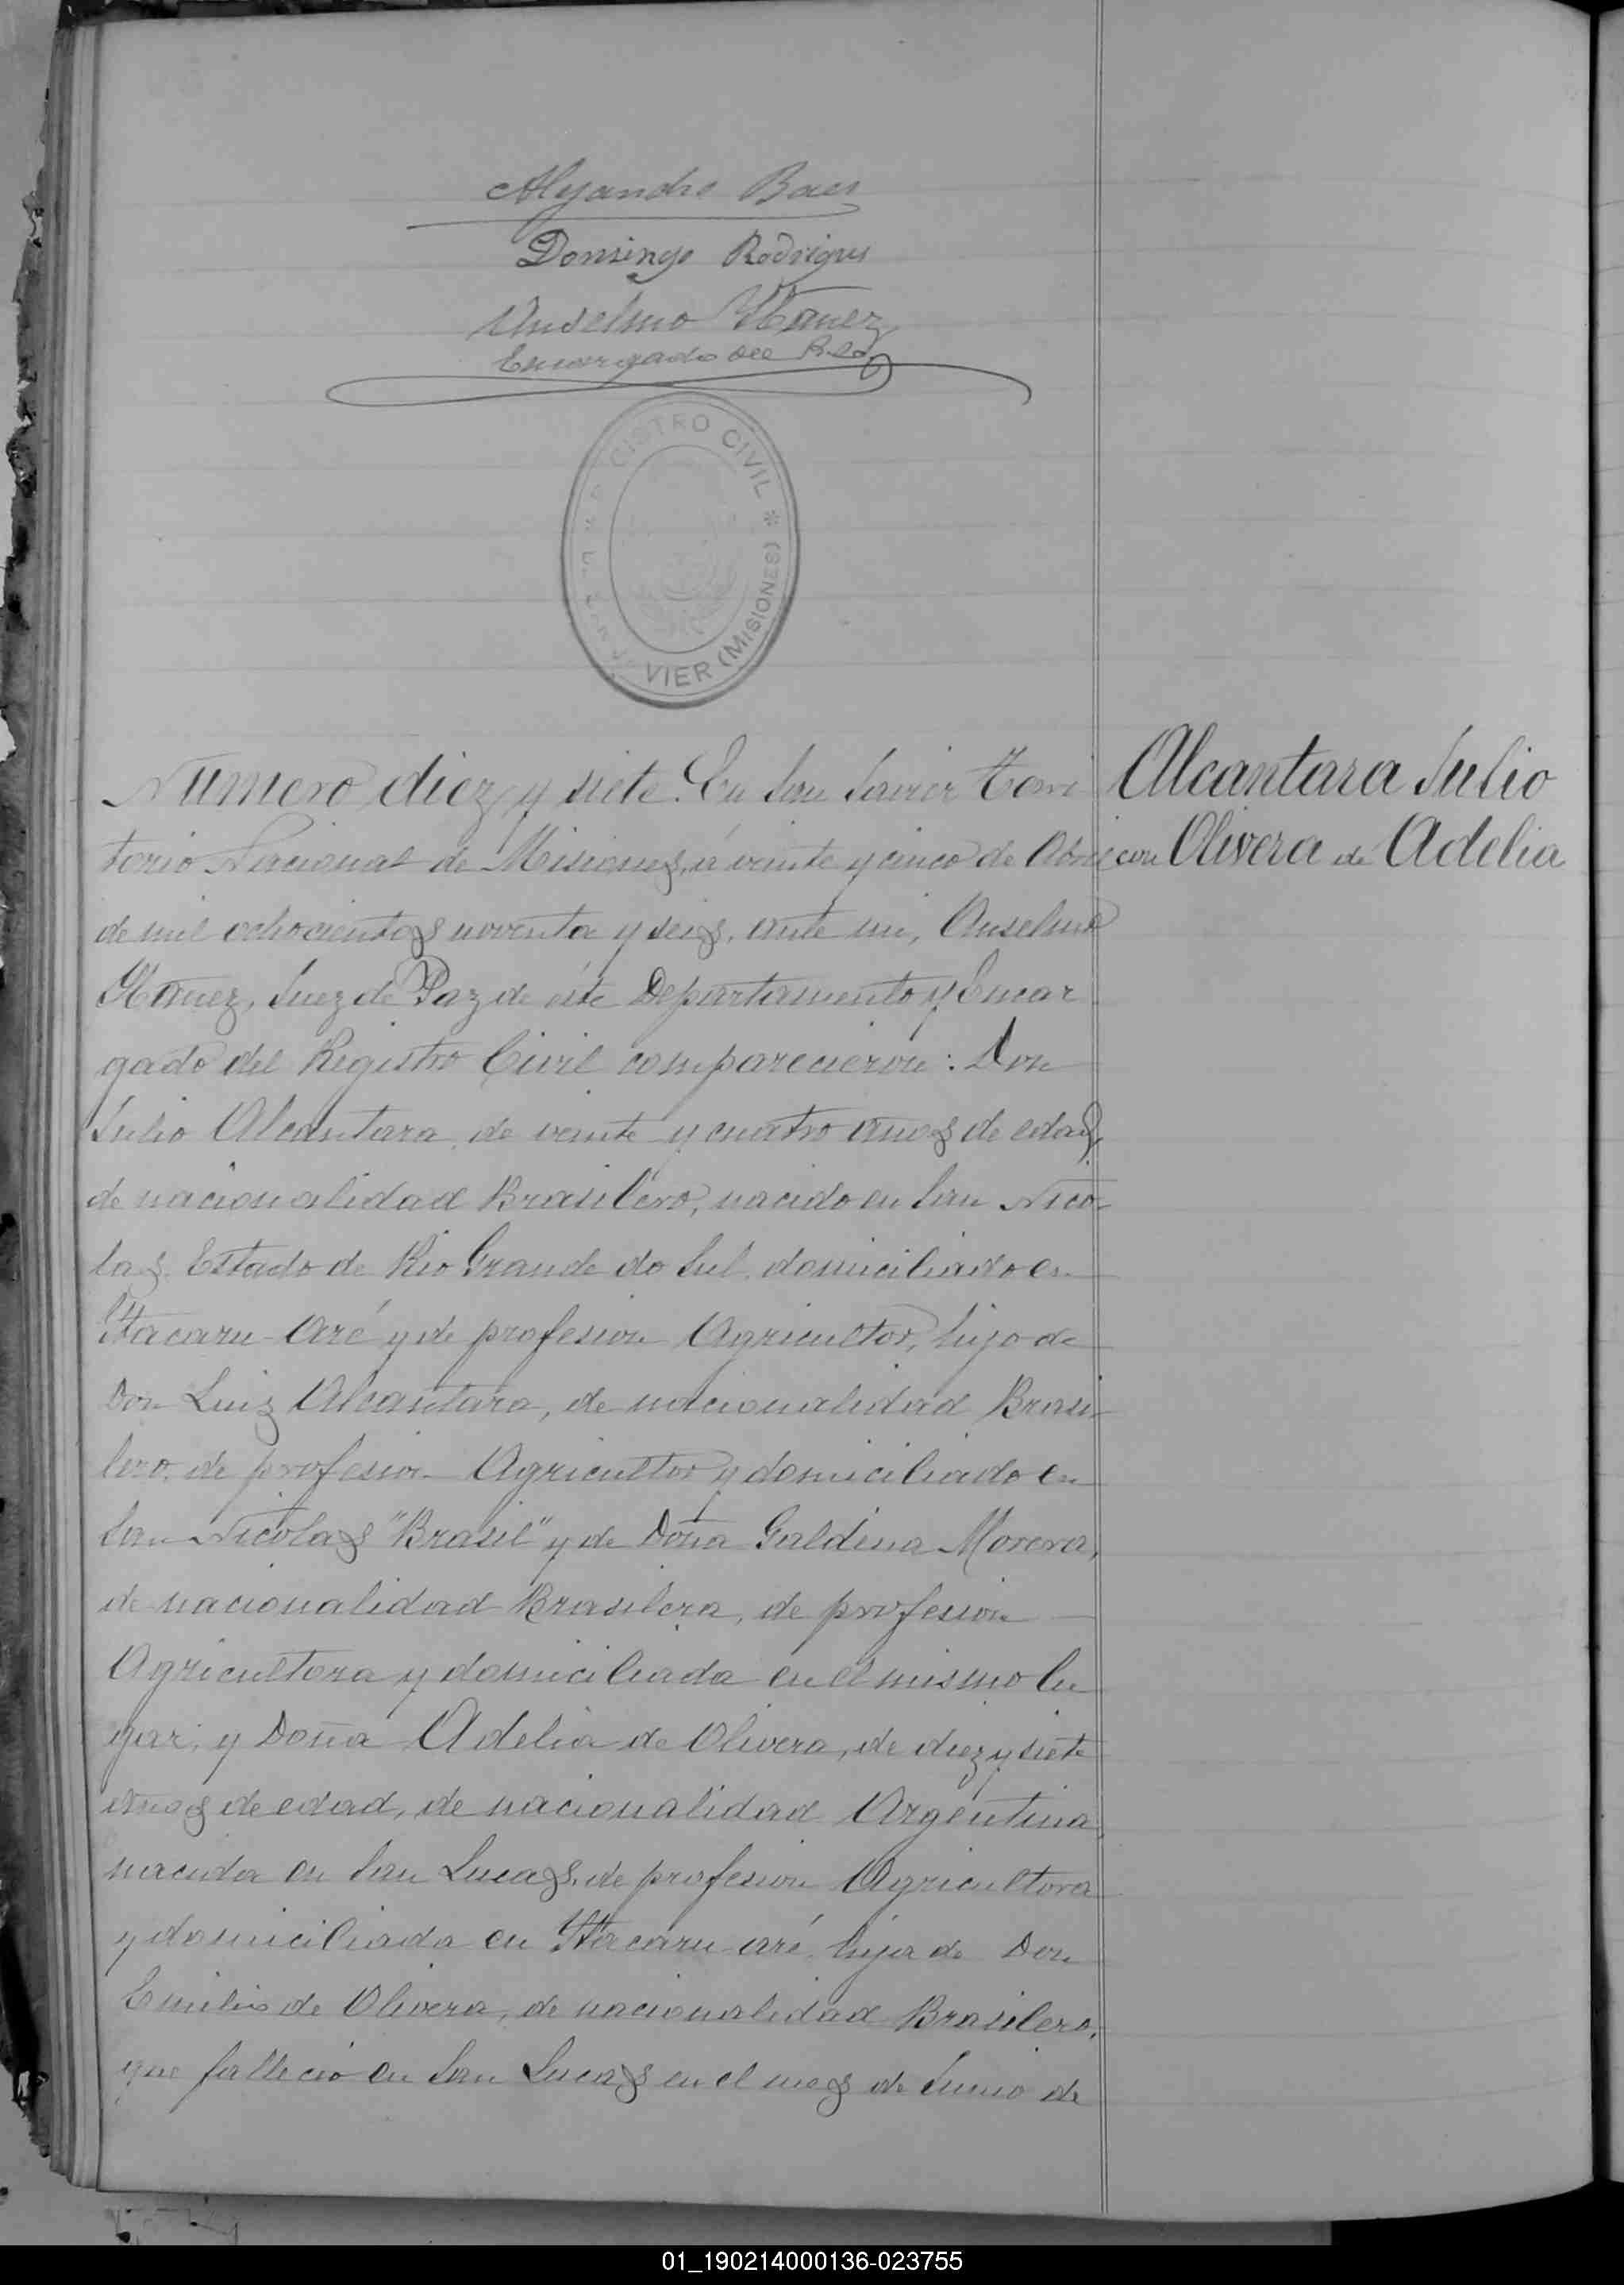 Alejandro Baes
Domingo Rodrigues
Anselmo Ybañez
Encargado del R. Co.
CISTRO CIVIL *
VIER (MISIONES)
Numero diez y siete. En San Javier Terri
Alcantara Julio
torio Nacional de Misiones, á veinte y cinco de Abril
con Olivera de Adelia
de mil ochocientos noventa y seis, ante mi, Anselmo
Ybañez, Juez de Paz de éste Departamento y Encar
gado del Registro Civil comparecieron: Don
Julio Alcantara, de veinte y cuatro años de edad,
de nacionalidad Brasilero, nacido en San Nico-
las, Estado de Rio Grande do Sul, domiciliado en
Ytacaru-aré y de profesion Agricultor, hijo de
Don Luiz Alcantara, de nacionalidad Brasi-
lero, de profesion Agricultor y domiciliado en
San Nicolas "Brasil" y de Doña Galdina Morera,
de nacionalidad Brasilera, de profesion
Agricultora y domiciliada en el mismo lu
gar; y Doña Adelia de Olivera, de diez y siete
años de edad, de nacionalidad Argentina,
nacida en San Lucas, de profesion Agricultora
y domiciliada en Ytacaru-aré, hija de Don
Emilio de Olivera, de nacionalidad Brasilero,
que falleció en San Lucas en el mes de Junio de
01_190214000136-023755